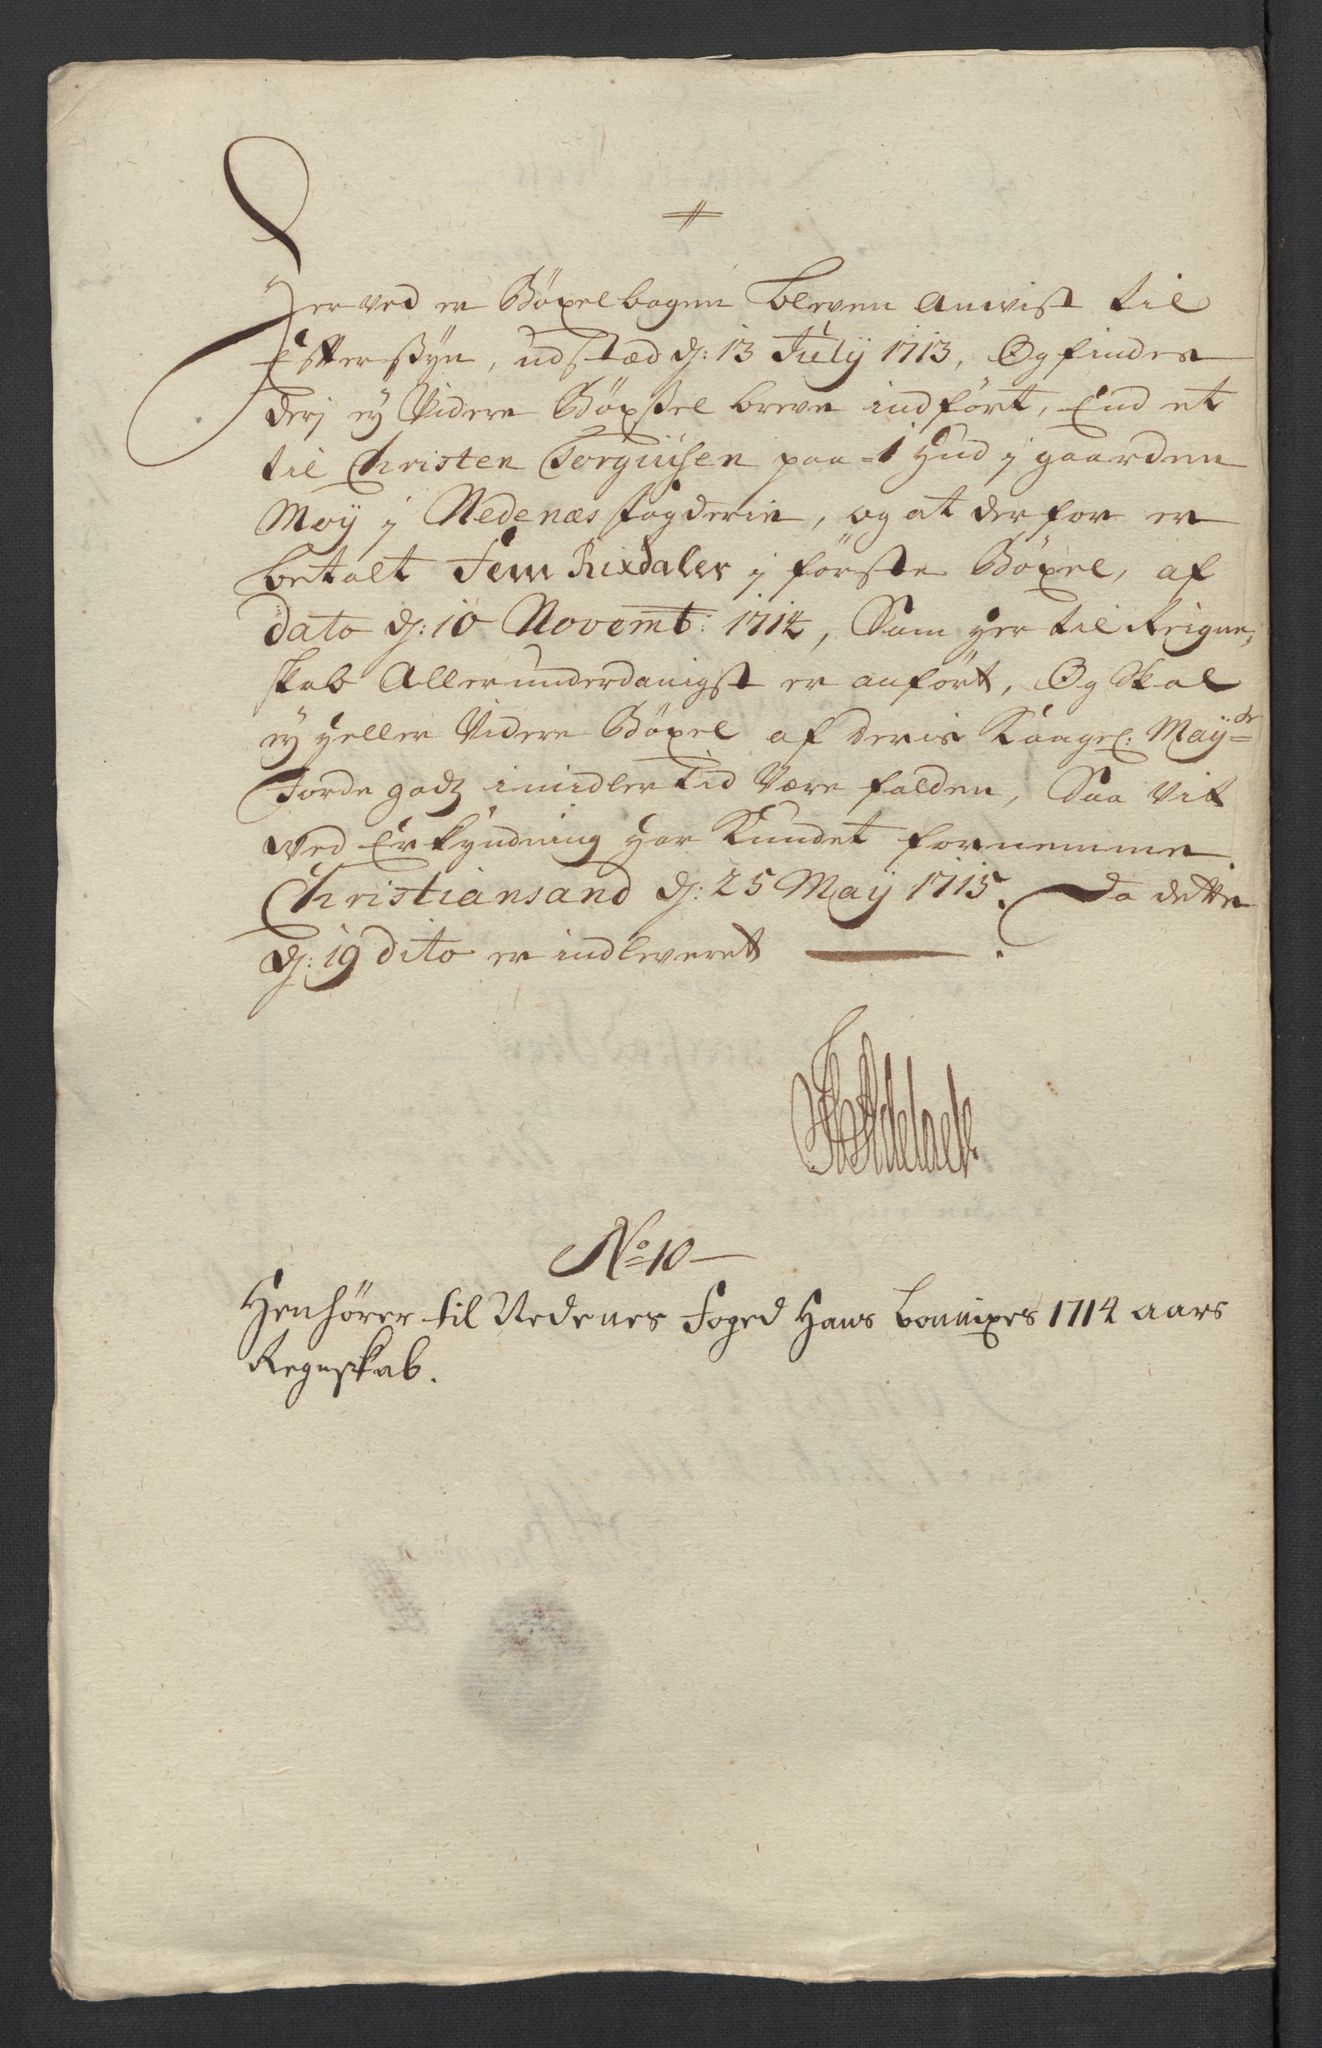 Herved er Böxelbogen bleven Anvist til
Effterssyn, udstæd d: 13 July 1713, Og findes
derj ey Videre Böxsel breve indfört, End et
til Christen Torgiusen paa 1 Hud j gaarden
Moy j Nedenæs fogderie, og at derfor er
betalt Fem Rixdaler j förste Böxel, af
dato d: 10 Novembr: 1714, Som her til Reigne,
skab Allerunderdanigst er anfört, Og skal
ey heller Videre Böxel af deris Kongel: Mayts
Jorde godz imidlertid Være falden, Saa vit
ved Erkyndning har Kundet fornemme
Christiansand d: 25 May 1715. Da dette
d: 19 dito er indleveret
No 10
Henhörer til Nedenes Foged Hans Bonnixes 1714 aars
Regnskab.